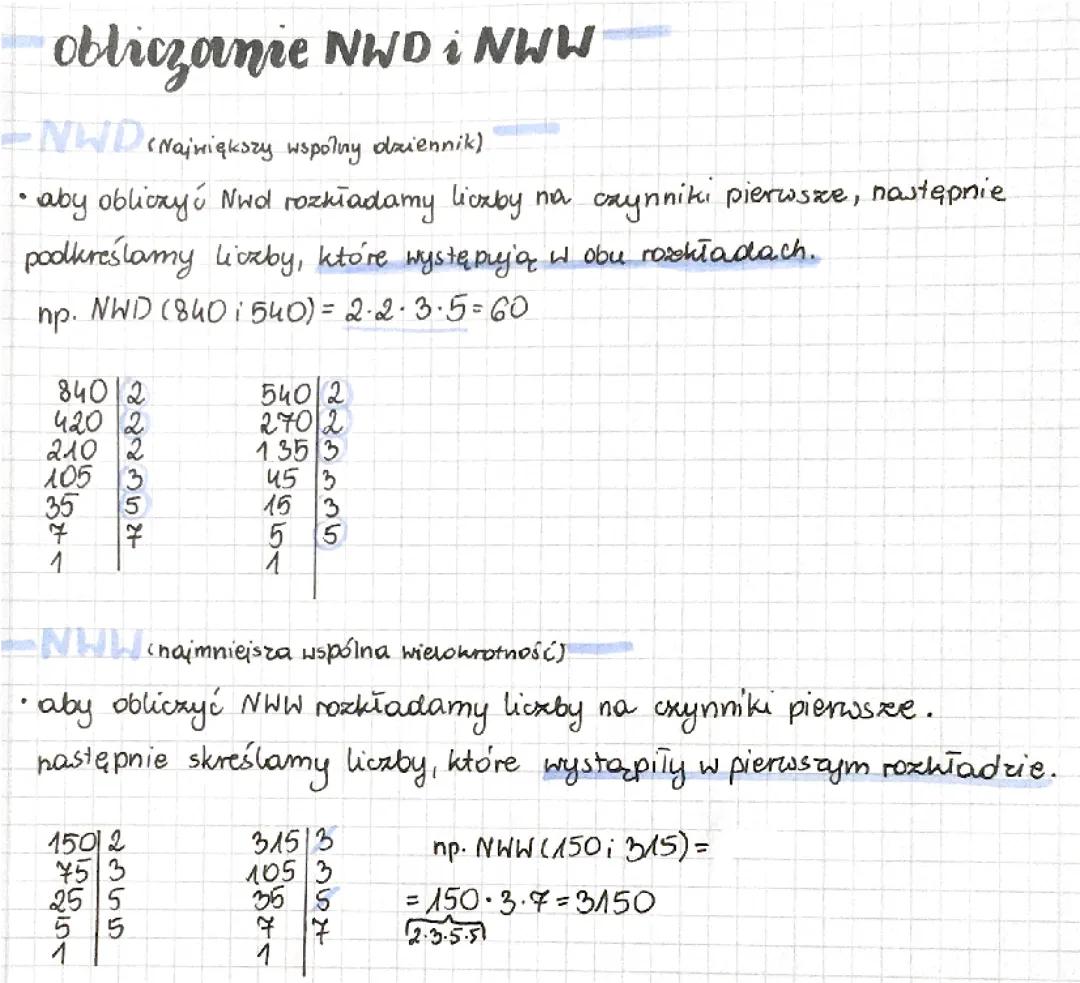 obliczanie NWD i NWW
NWD (Największy wspólny dziennik)
• aby obliczyć Nwd rozkładamy liczby na czynniki pierwsze, następnie
podkreślamy liczby, które występują w obu rozkładach.
np. NWD (840 i 540) = 2·2·3·5=60
840|2 540|2
420|2 270|2
210|2 135|3
105|3 45|3
35|5 15|3
7|7 5|5
1| 1|
NWW (najmniejsza wspólna wielokrotność)
• aby obliczyć NWW rozkładamy liczby na czynniki pierwsze.
następnie skreślamy liczby, które wystąpiły w pierwszym rozkładzie.
150|2 315|3 np. NWW (150 i 315) =
75|3 105|3
25|5 35|5 = 150·3·7=3150
5|5 7|7 2·3·5·5
1 1|